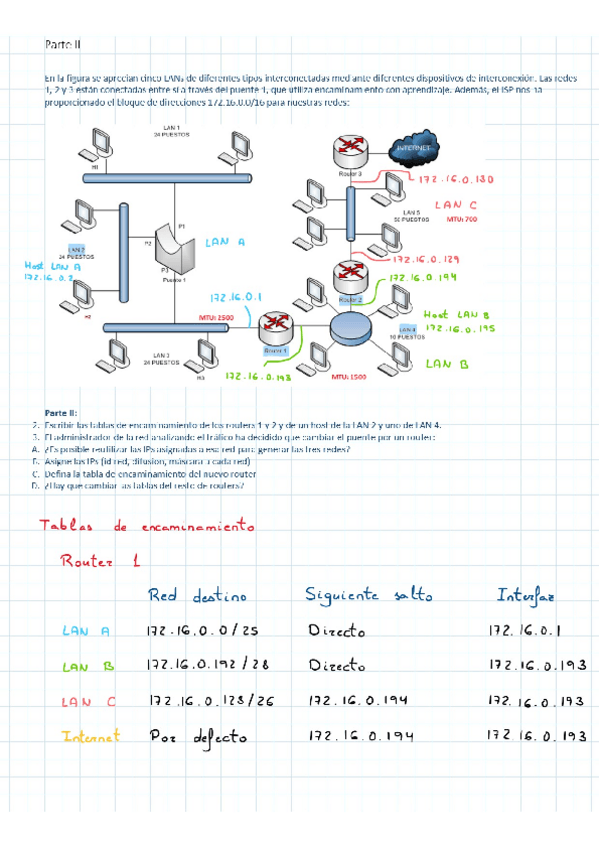 Parte II
En la figura se aprecian cinco LANs de diferentes tipos interconectadas mediante diferentes dispositivos de interconexión. Las redes
1, 2 y 3 están conectadas entre sí a través del puente 1, que utiliza encaminamiento con aprendizaje. Además, el ISP nos ha
proporcionado el bloque de direcciones 172.16.0.0/16 para nuestras redes:
LAN 1
24 PUESTOS
H1
INTERNET
Router 3
172.16.0.130
LAN C
LAN 5
50 PUESTOS
MTU: 700
P1
P2
LAN A
LAN 2
24 PUESTOS
P3
Puente 1
Host LAN A
172.16.0.2
172.16.0.129
172.16.0.194
Router 2
172.16.0.1
H2
MTU: 2500
Host LAN B
172.16.0.195
Router 1
LAN 4
10 PUESTOS
LAN 3
24 PUESTOS
H3
172.16.0.193
MTU: 1500
LAN B
Parte II:
2. Escribir las tablas de encaminamiento de los routers 1 y 2 y de un host de la LAN 2 y uno de LAN 4.
3. El administrador de la red analizando el tráfico ha decidido que cambiar el puente por un router:
A. ¿Es posible reutilizar las IPs asignadas a esa red para generar las tres redes?
B. Asigne las IPs (id red, difusion, máscara a cada red)
C. Defina la tabla de encaminamiento del nuevo router
D. ¿Hay que cambiar las tablas del resto de routers?
Tablas de encaminamiento
Router 1
Red destino Siguiente salto Interfaz
LAN A 172.16.0.0/25 Directo 172.16.0.1
LAN B 172.16.0.192/28 Directo 172.16.0.193
LAN C 172.16.0.128/26 172.16.0.194 172.16.0.193
Internet Por defecto 172.16.0.194 172.16.0.193